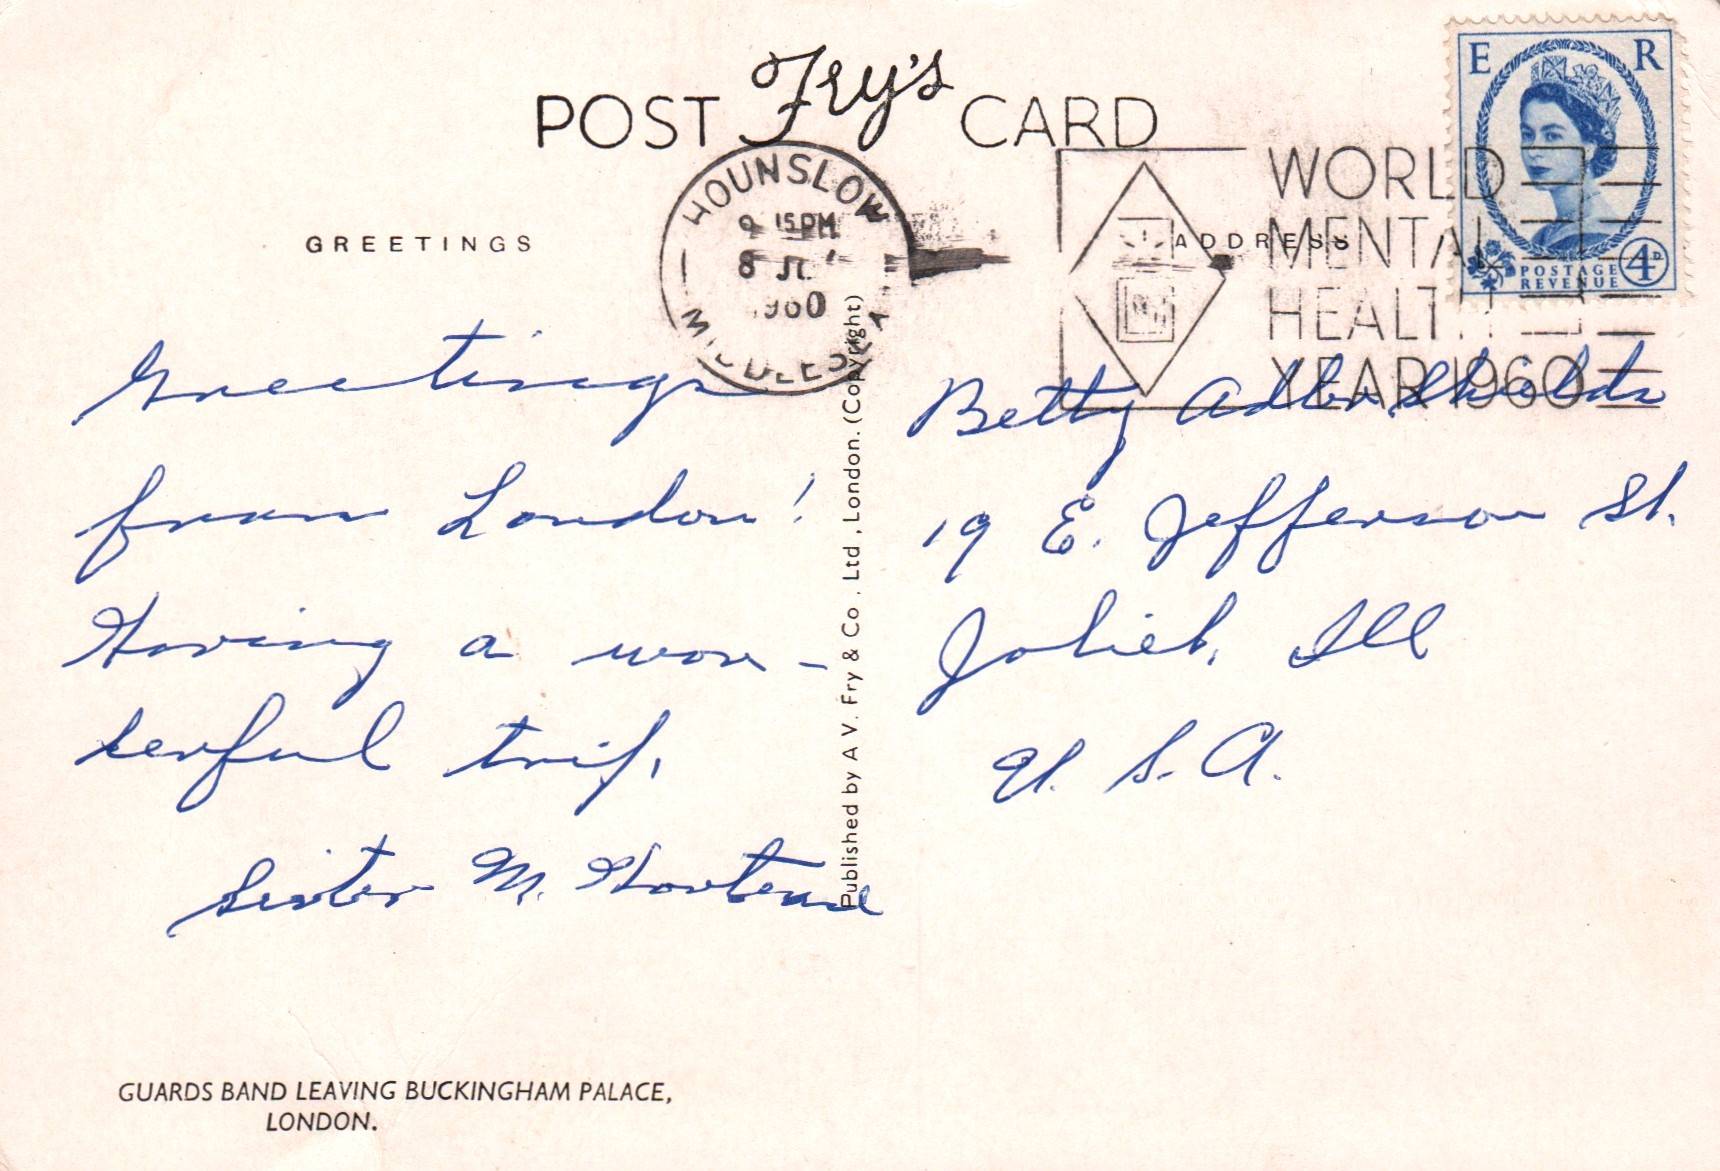 POST Fry's CARD
GREETINGS
ADDRESS
HOUNSLOW
15PM
8
1960
MIDDLESEX
WORLD
MENTAL
HEALTH
YEAR 1960
E R
POSTAGE
REVENUE
4D
Greetings
from London!
Having a won-
derful trip.
Sister M. Hortense
Published by A V. Fry & Co., Ltd., London. (Copyright)
Betty Adler Shields
19 E. Jefferson St.
Joliet, Ill
U. S. A.
GUARDS BAND LEAVING BUCKINGHAM PALACE,
LONDON.